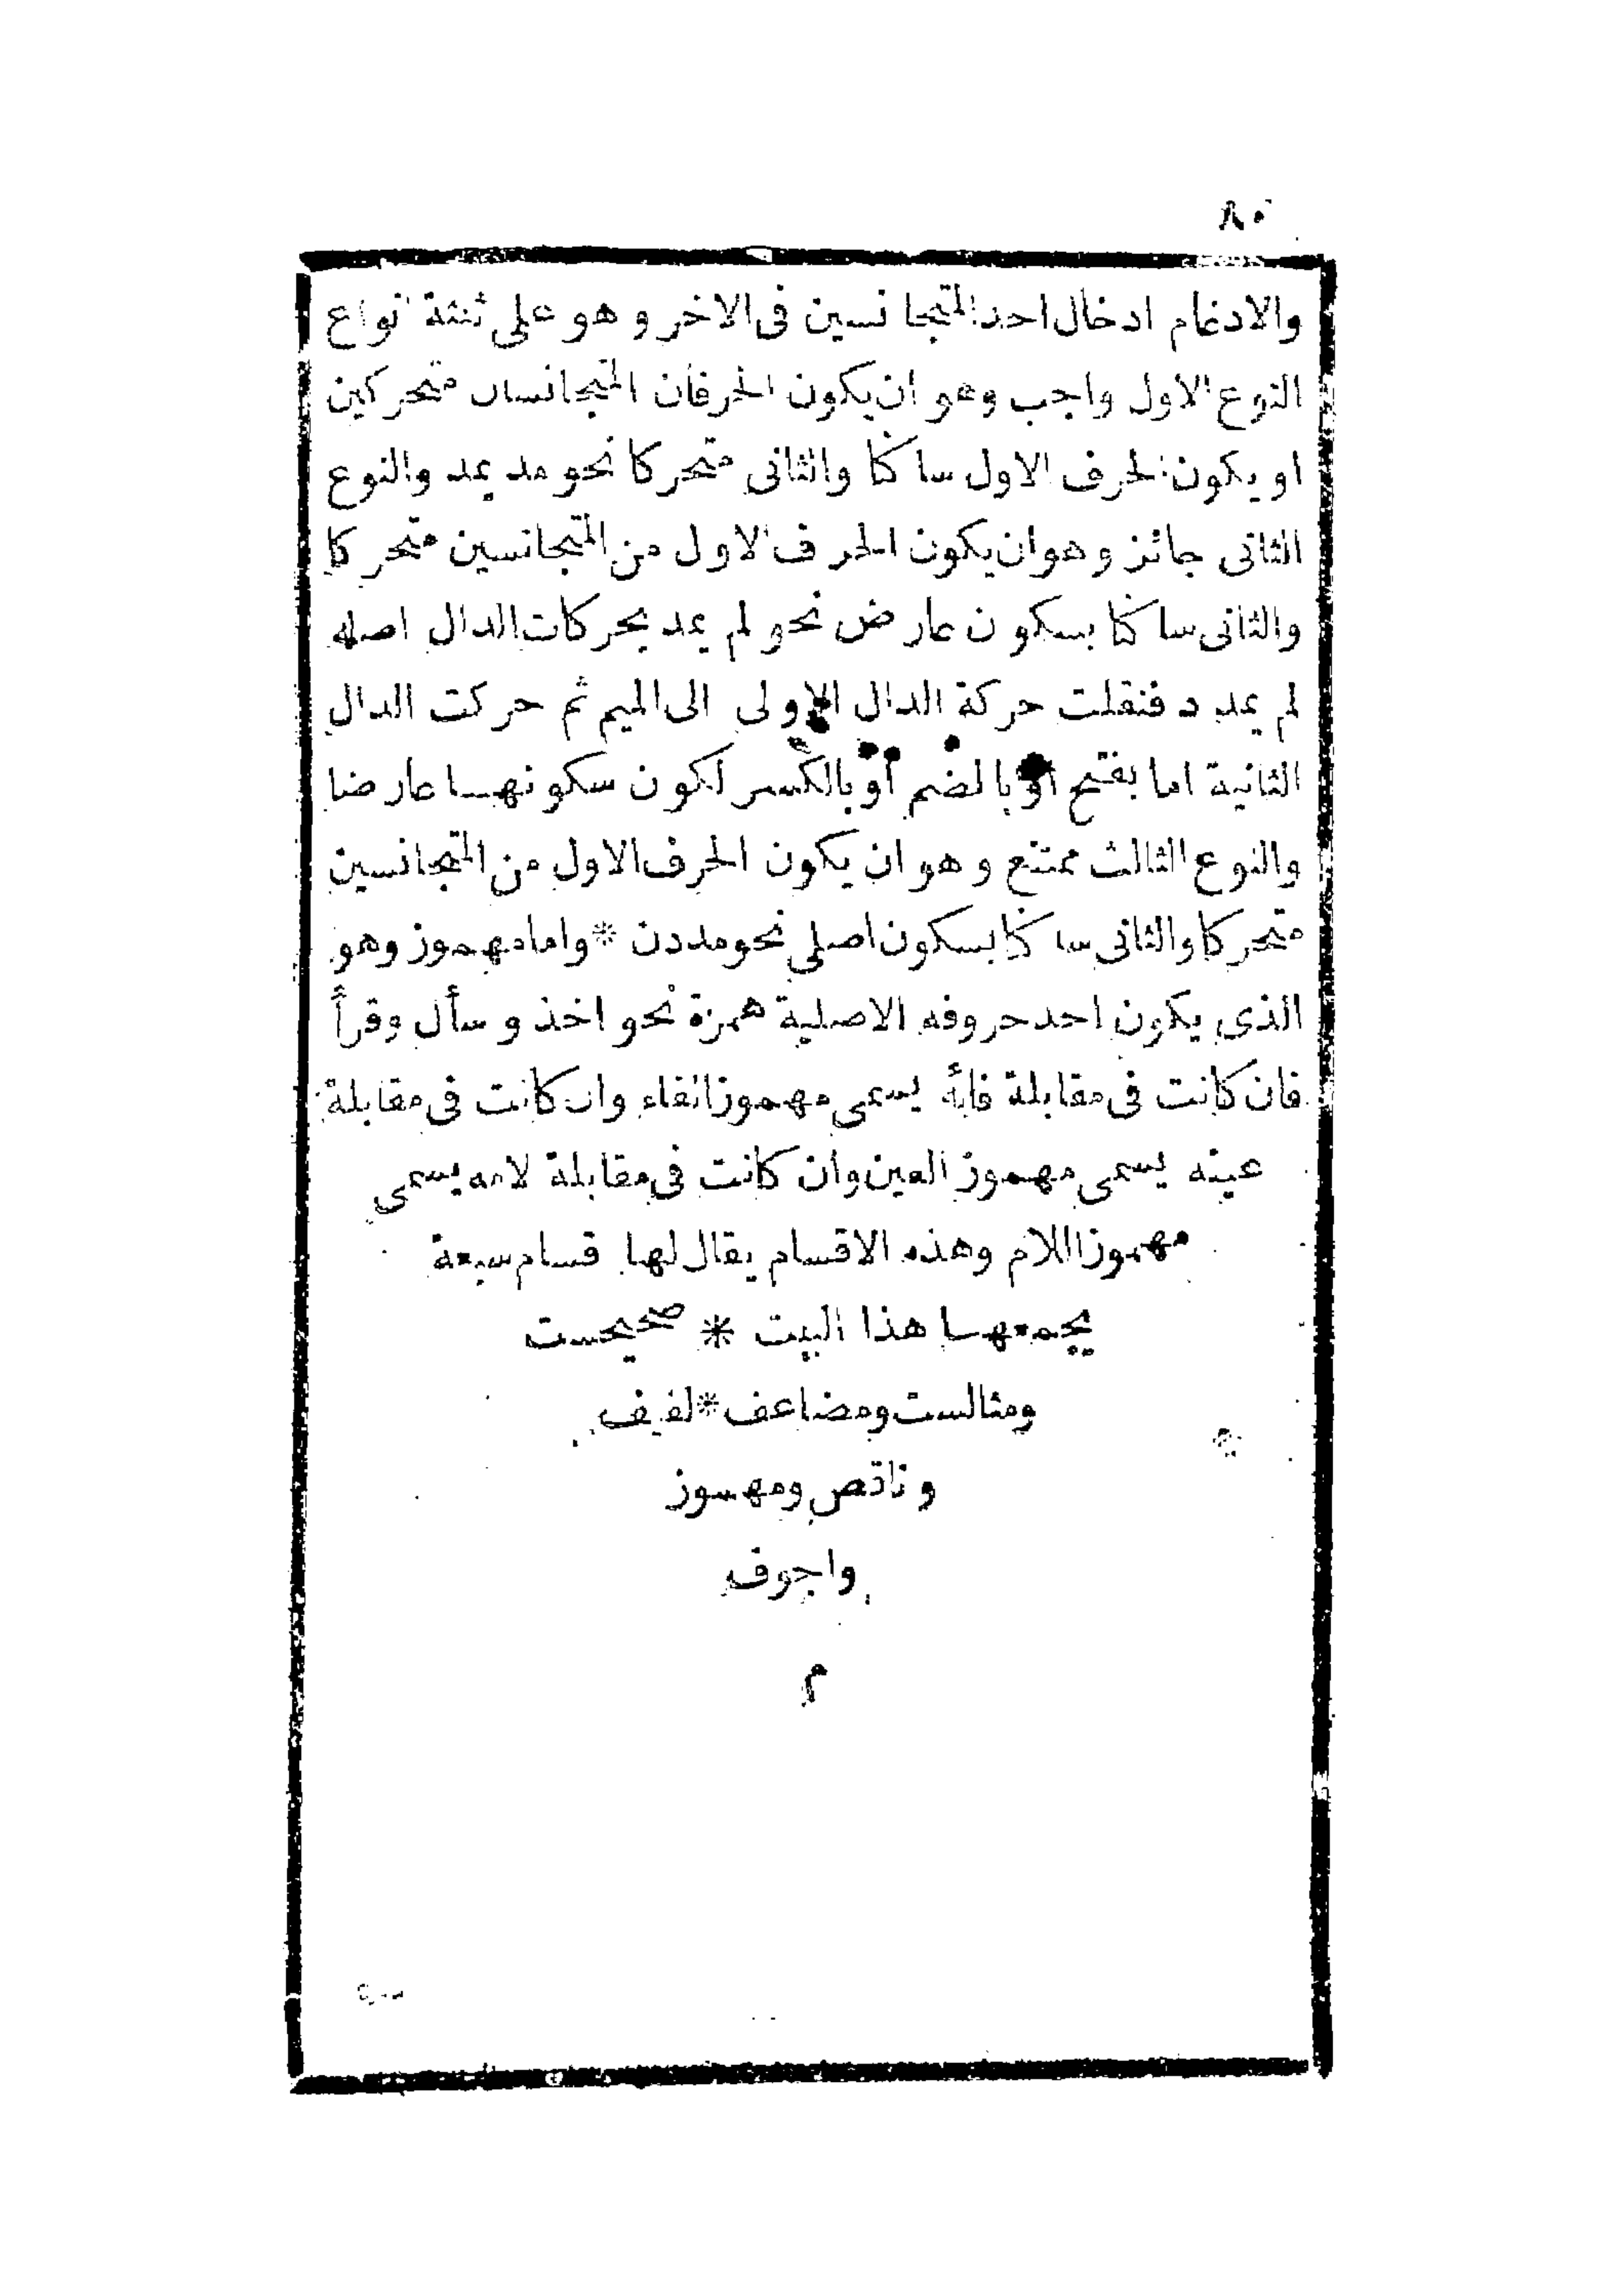 والادغام ادخال احد المتجانسين فى الاخر وهو على ثلثة انواع
النوع الاول واجب وهو ان يكون الحرفان المتجانسان متحركين
او يكون الحرف الاول ساكنا والثانى متحركا نحو مد يمد والنوع
الثانى جائز وهو ان يكون الحرف الاول من المتجانسين متحركا
والثانى ساكنا بسكون عارض نحو لم يمد بحركات الدال اصله
لم يمدد فنقلت حركة الدال الاولى الى الميم ثم حركت الدال
الثانية اما بفتح او بالضم او بالكسر لكون سكونها عارضا
والنوع الثالث ممتنع وهو ان يكون الحرف الاول من المتجانسين
متحركا والثانى ساكنا بسكون اصلى نحو مددن * واما مهموز وهو
الذى يكون احد حروفه الاصلية همزة نحو اخذ وسأل وقرأ
فان كانت فى مقابلة فائه يسمى مهموز الفاء وان كانت فى مقابلة
عينه يسمى مهموز العين وان كانت فى مقابلة لامه يسمى
مهموز اللام وهذه الاقسام يقال لها اقسام سبعة
يجمعها هذا البيت * صحيحست
ومثالست ومضاعف * لفيف
وناقص ومهموز
واجوف
م